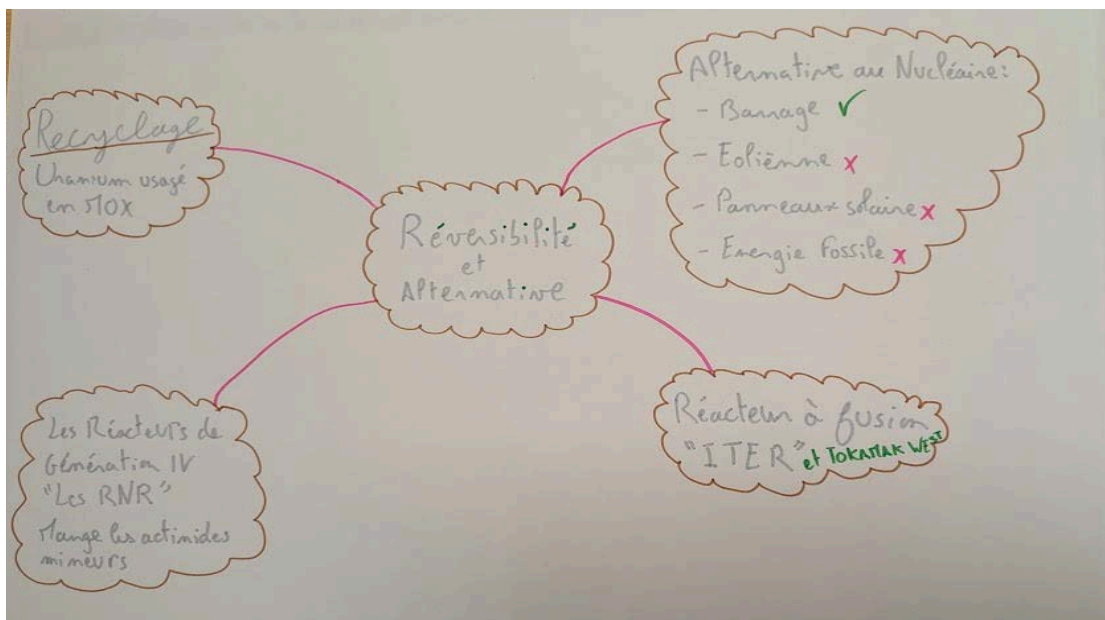 Recyclage
Uranium usagé
en MOX
Réversibilité
et
Alternative
Alternative au Nucléaire:
- Barrage ✓
- Eoliènne x
- Panneaux solaire x
- Energie Fossile x
Les Réacteurs de
Génération IV
"Les RNR"
Mange les actinides
mineurs
Réacteur à fusion
"ITER" et TOKAMAK WEST